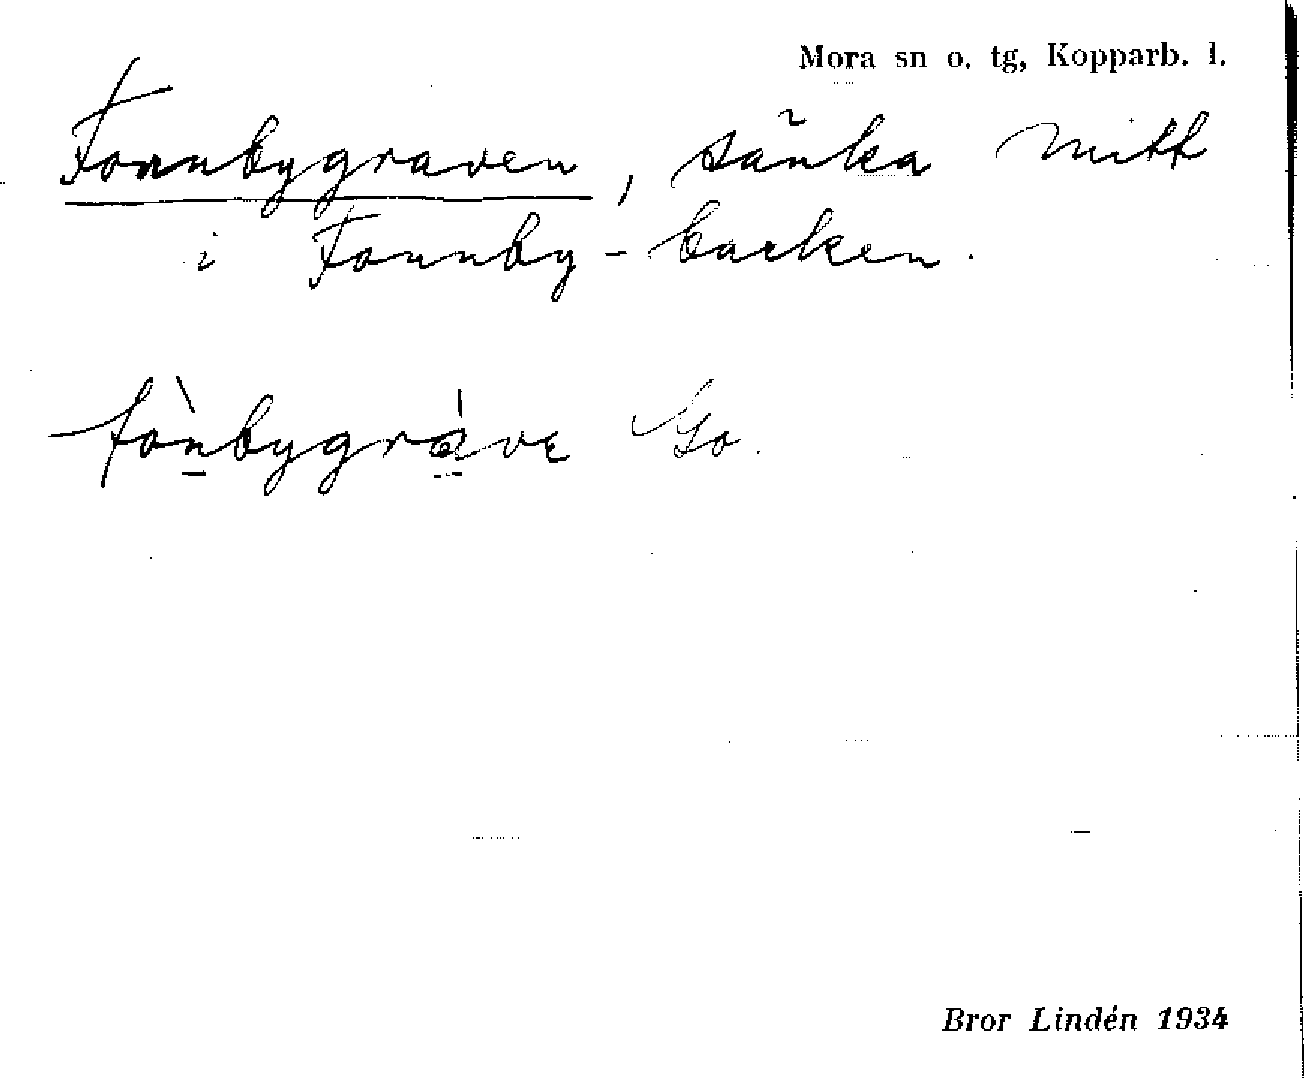 Mora sn o. tg, Kopparb. l.
Fonnbygraven, sänka mitt
i Fonnby-backen.
fònbygráve Go.
Bror Lindén 1934